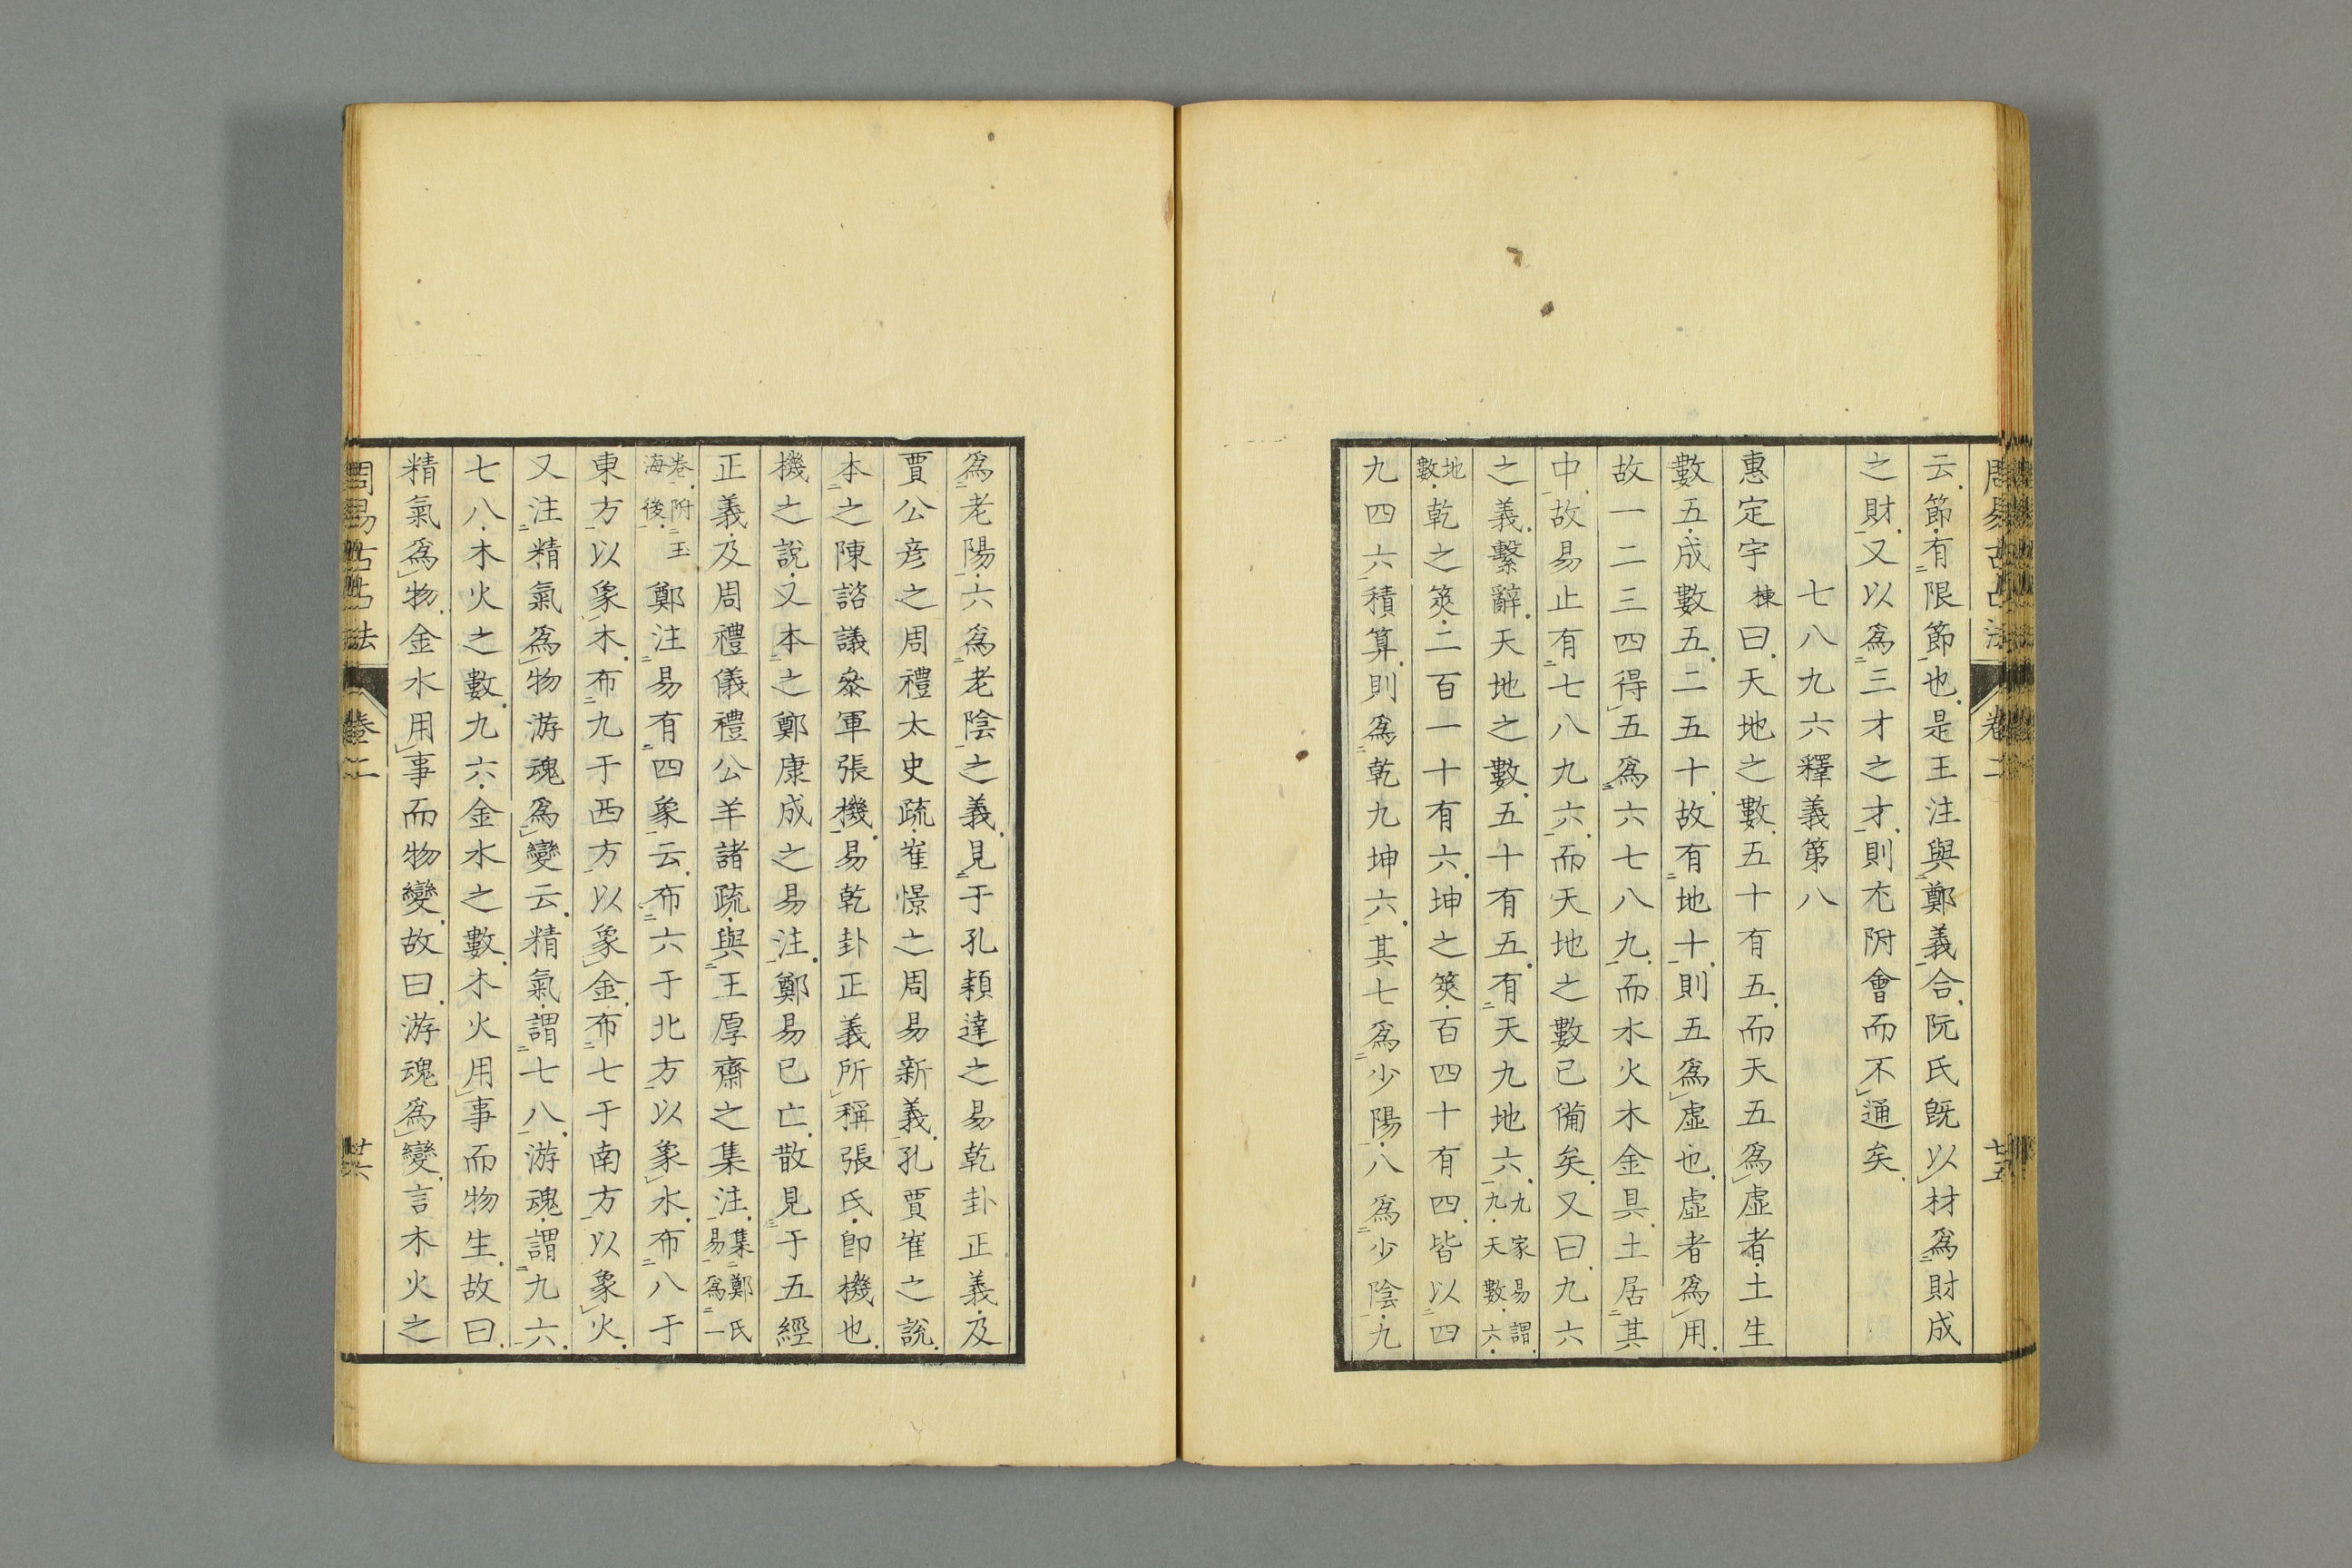 周易古占法 卷二 廿五
云節有限節也是王注與鄭義合阮氏既以材爲財成
之財又以爲三才之才則尤附會而不通矣
七八九六釋義第八
惠定宇棟曰天地之數五十有五而天五爲虛者土生
數五成數五二五十故有地十則五爲虛也虛者爲用
故一二三四得五爲六七八九而水火木金具土居其
中故易止有七八九六而天地之數已備矣又曰九六
之義繫辭天地之數五十有五有天九地六九家易謂九天數六
地數乾之筴二百一十有六坤之筴百四十有四皆以四
九四六積算則爲乾九坤六其七爲少陽八爲少陰九
爲老陽六爲老陰之義見于孔穎達之易乾卦正義及
賈公彦之周禮太史疏崔憬之周易新義孔賈崔之說
本之陳諮議叅軍張機易乾卦正義所稱張氏即機也
機之說又本之鄭康成之易注鄭易已亡散見于五經
正義及周禮儀禮公羊諸疏與王厚齋之集注集鄭氏易爲一
卷附玉海後鄭注易有四象云布六于北方以象水布八于
東方以象木布九于西方以象金布七于南方以象火
又注精氣爲物游魂爲變云精氣謂七八游魂謂九六
七八木火之數九六金水之數木火用事而物生故曰
精氣爲物金水用事而物變故曰游魂爲變言木火之
周易古占法 卷二 廿六